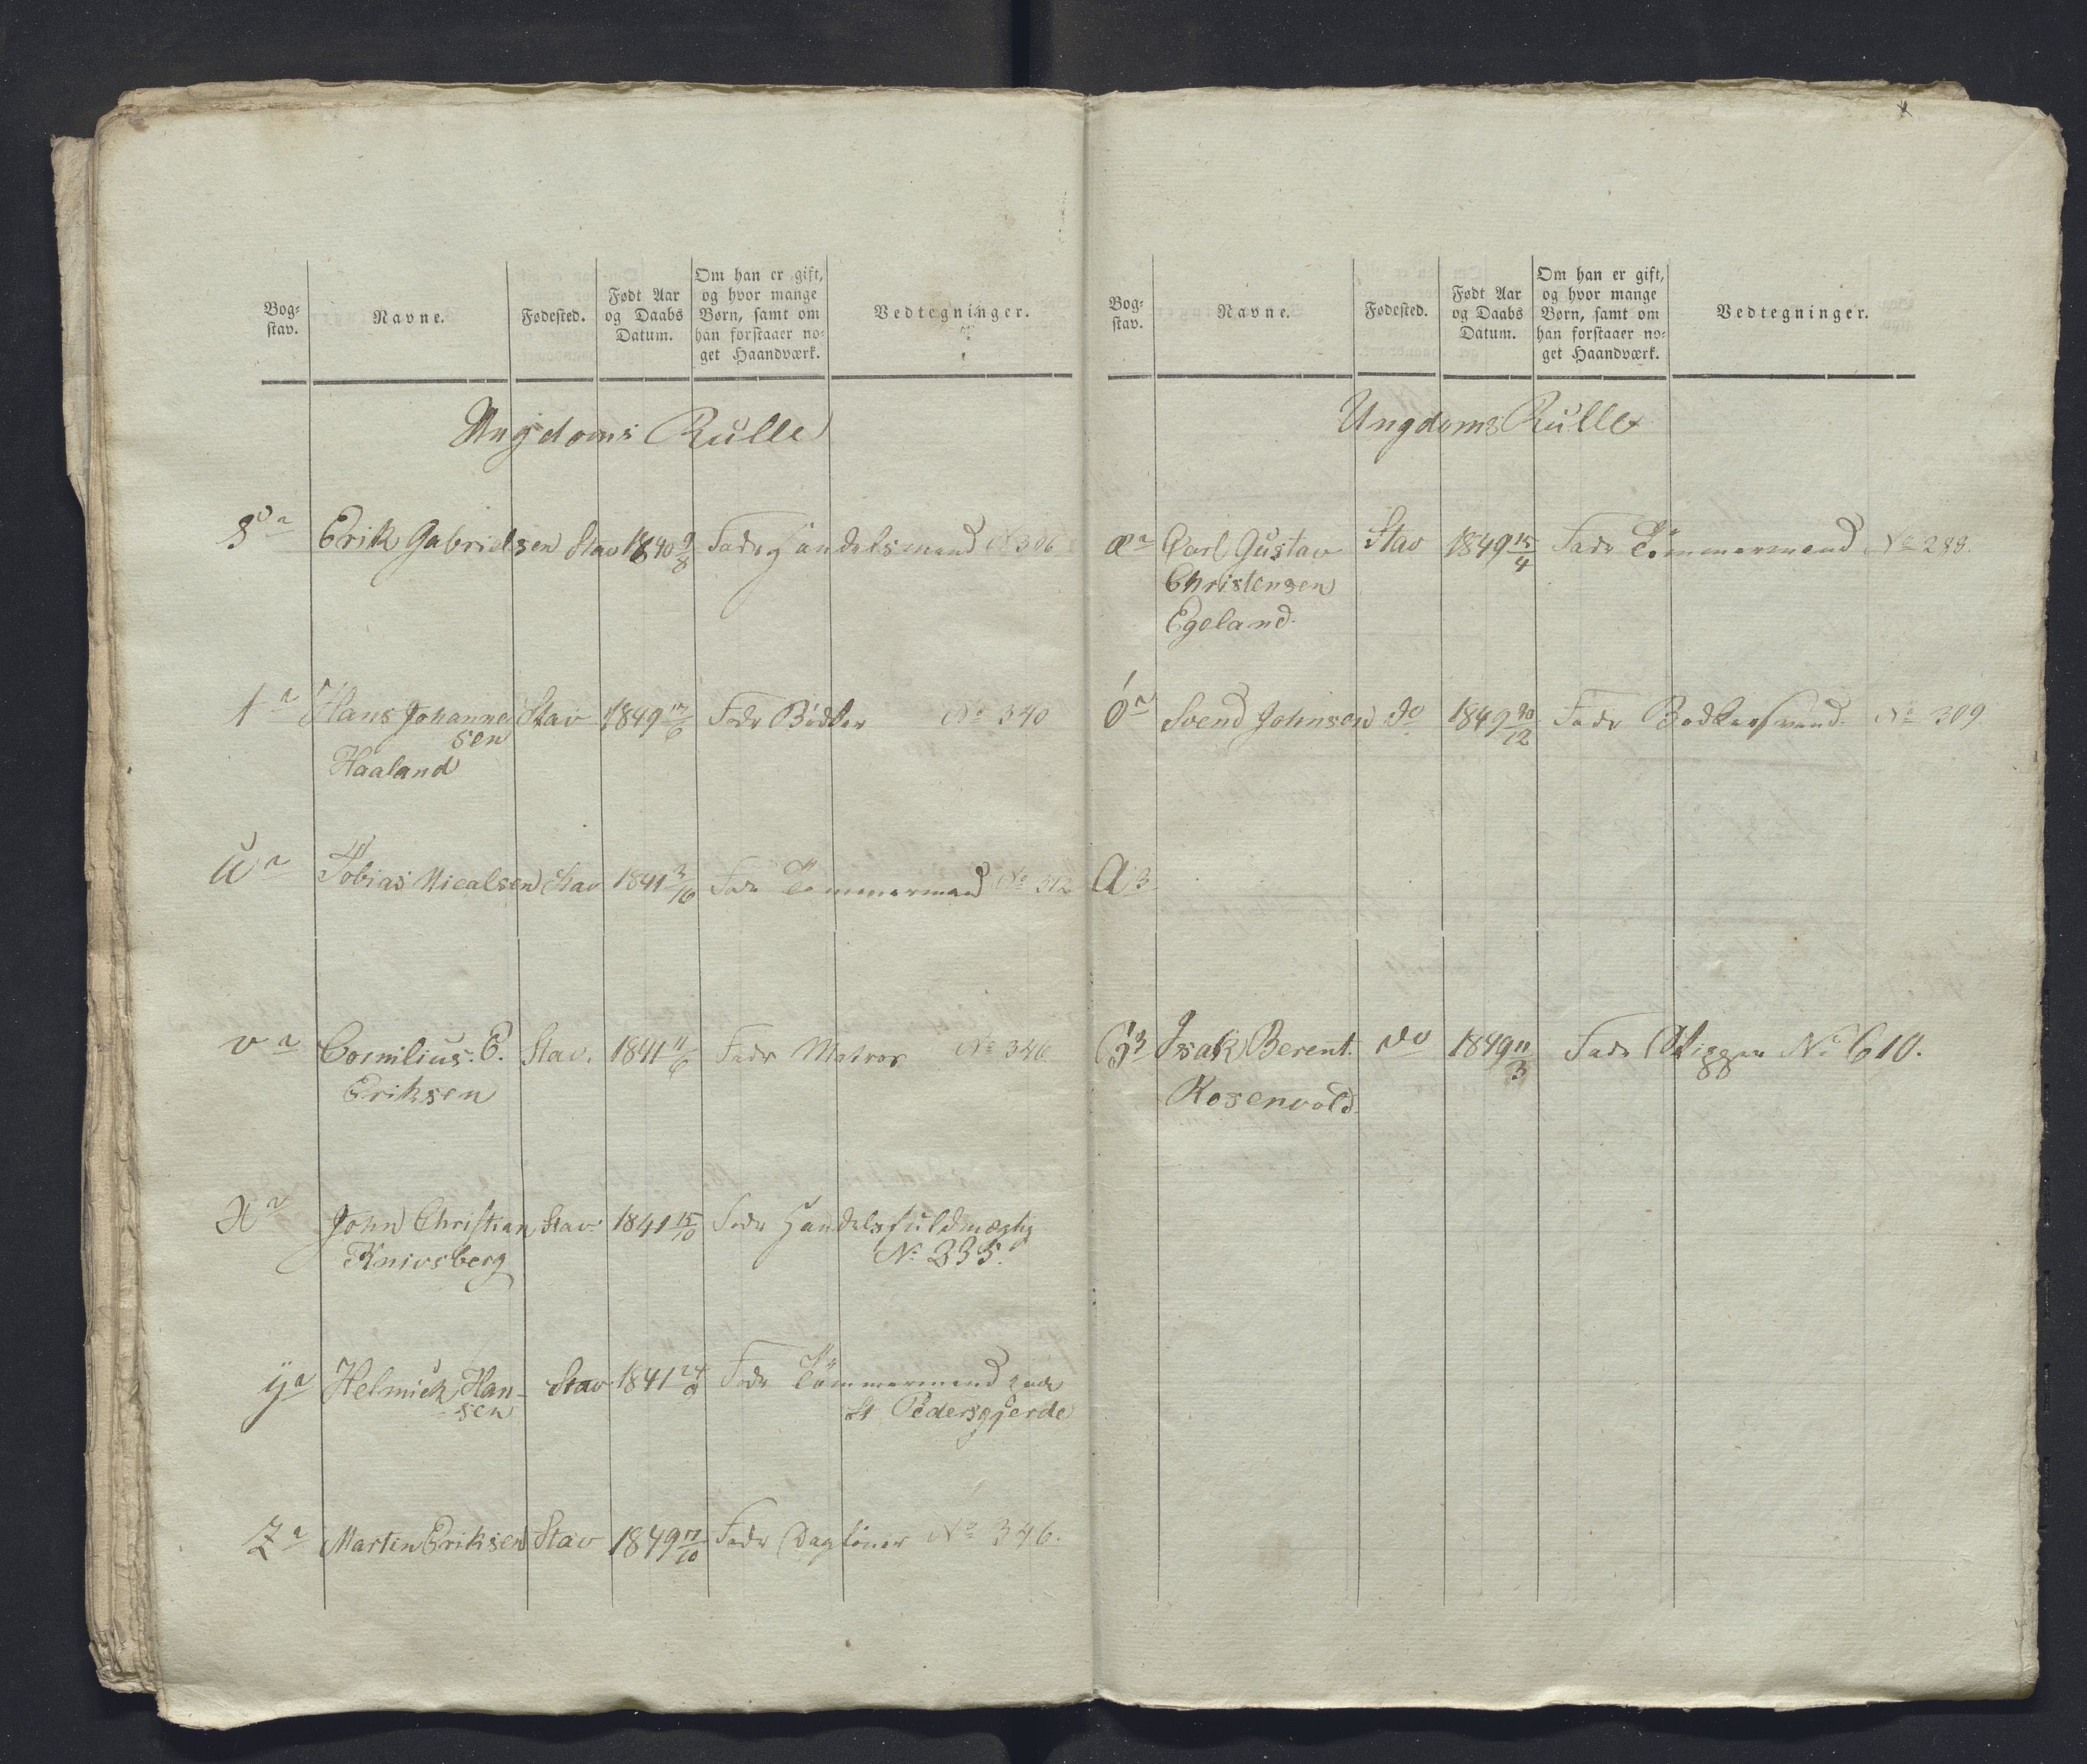 Bog-
stav.
Navne.
Fødested.
Født Aar
og Daabs
Datum.
Om han er gift,
og hvor mange
Børn, samt om
han forstaaer no-
get Haandværk.
Vedtegninger.
Ungdoms Rulle
s a Erik Gabrielsen Stav 1840 9/8 Fadr Handelsmand No 306
t a Hans Johanne Stav 1849 17/6 Fadr Bødker No 340
sen
Haaland
u a Tobias Nicalsen Stav 1841 3/10 Fadr Tømmermand No 312
v a Cornilius. E. Stav. 1841 11/6 Fadr Matros No 346
Eriksen
x a John Christian Stav. 1841 15/10 Fadr Handelsfuldmægtig
Knivsberg No 335.
y a Helmich Han- Stav 1841 24/9 Fadr Tømmermand
sen St Pedersgjerde
z a Martin Eriksen Stav 1849 17/10 Fadr Dagløner No 346.
Bog-
stav.
Navne.
Fødested.
Født Aar
og Daabs
Datum.
Om han er gift,
og hvor mange
Børn, samt om
han forstaaer no-
get Haandværk.
Vedtegninger.
Ungdoms Rulle
æ a Carl Gustav Stav 1849 15/4 Fadr Tømmermand No 288.
Christensen
Egeland.
ø a Svend Johnsen do 1849 30/12 Fadr Bødkersvend. No 309
A 3
Isak Berent. do 1849 11/3 Fadr No 610.
Rosenvold